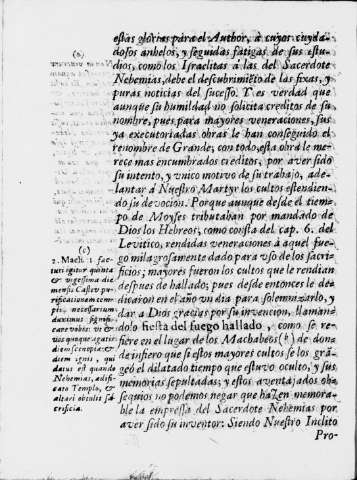 estas glorias para el Author, à cuyos cuyda-
dosos anhelos, y seguidas fatigas de sus estu-
dios, como los Israelitas à las del Sacerdote
Nehemias, debe el descubrimiẽto de las fixas, y
puras noticias del sucesso. Y es verdad que
aunque su humildad no solicita creditos de su
nombre, pues para mayores veneraciones, sus
ya executoriadas obras le han conseguido el
renombre de Grande; con todo, esta obra le me-
rece mas encumbrados creditos, por aver sido
su intento, y vnico motivo de su trabajo, ade-
lantar à Nuestro Martyr los cultos estendien-
do su devocion. Porque aunque desde el tiem-
po de Moyses tributaban por mandado de
Dios los Hebreos, como consta del cap. 6. del
Levitico, rendidas veneraciones à aquel fue-
go milagrosamente dado para vso de los sacri-
ficios; mayores fueron los cultos que le rendian
despues de hallado; pues desde entonces le de-
dicaron en el año vn dia para solemnizarlo, y
dar a Dios gracias por su invencion, llaman-
dolo fiesta del fuego hallado, como se re-
fiere en el lugar de los Machabèos (*) de don-
de infiero que si estos mayores cultos se los grã-
geò el dilatado tiempo que estuvo oculto, y sus
memorias sepultadas; y estos aventajados ob-
sequios no podemos negar que hazen memora-
ble la empressa del Sacerdote Nehemias por
aver sido su inventor: Siendo Nuestro Inclito
Pro-
(c)
2. Mach. 1. fac-
turi igitur quinta
& vigesima die
mensis Casleu pu-
rificationem tem-
pli, necessarium
duximus signifi-
care vobis: vt &
vos quoque agatis
diem scenopegiæ: &
diem ignis, qui
datus est quando
Nehemias, ædifi-
cato Templo, &
altari obtulit sa-
crificia.